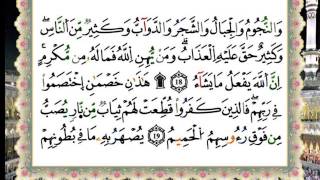 وَالنُّجُومُ وَالْجِبَالُ وَالشَّجَرُ وَالدَّوَآبُّ وَكَثِيرٌ مِّنَ النَّاسِ ۖ
وَكَثِيرٌ حَقَّ عَلَيْهِ الْعَذَابُ ۗ وَمَن يُهِنِ اللَّهُ فَمَالَهُ مِن مُّكْرِمٍ ۚ
إِنَّ اللَّهَ يَفْعَلُ مَا يَشَآءُ ۩ ۝١٨ هَٰذَانِ خَصْمَٰنِ اخْتَصَمُوا
فِي رَبِّهِمْ ۖ فَالَّذِينَ كَفَرُوا قُطِّعَتْ لَهُمْ ثِيَابٌ مِّن نَّارٍ يُصَبُّ
مِن فَوْقِ رُءُوسِهِمُ الْحَمِيمُ ۝١٩ يُصْهَرُ بِهِ مَا فِي بُطُونِهِمْ